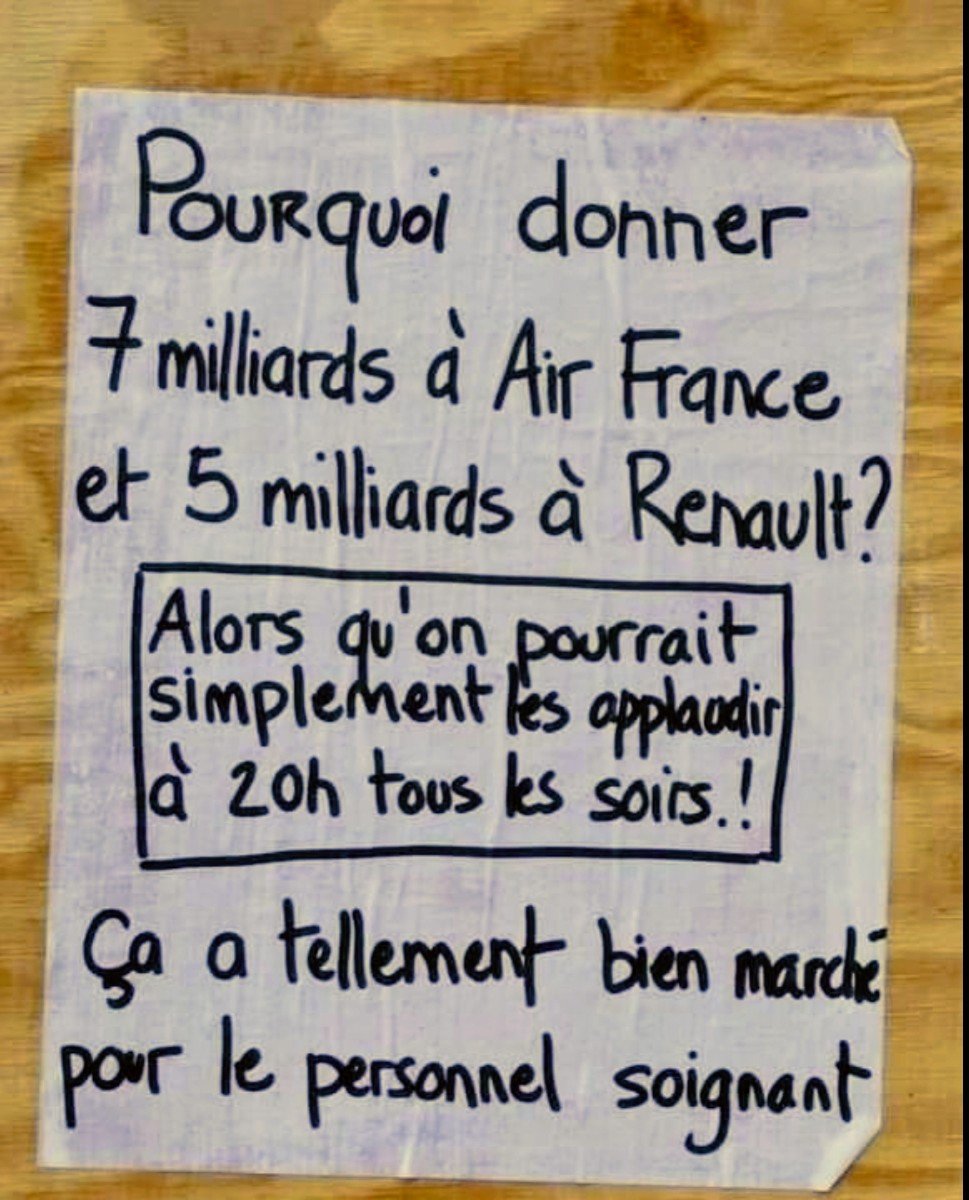 Pourquoi donner
7 milliards à Air France
et 5 milliards à Renault?
Alors qu'on pourrait
simplement les applaudir
à 20h tous les soirs.!
Ça a tellement bien marché
pour le personnel soignant